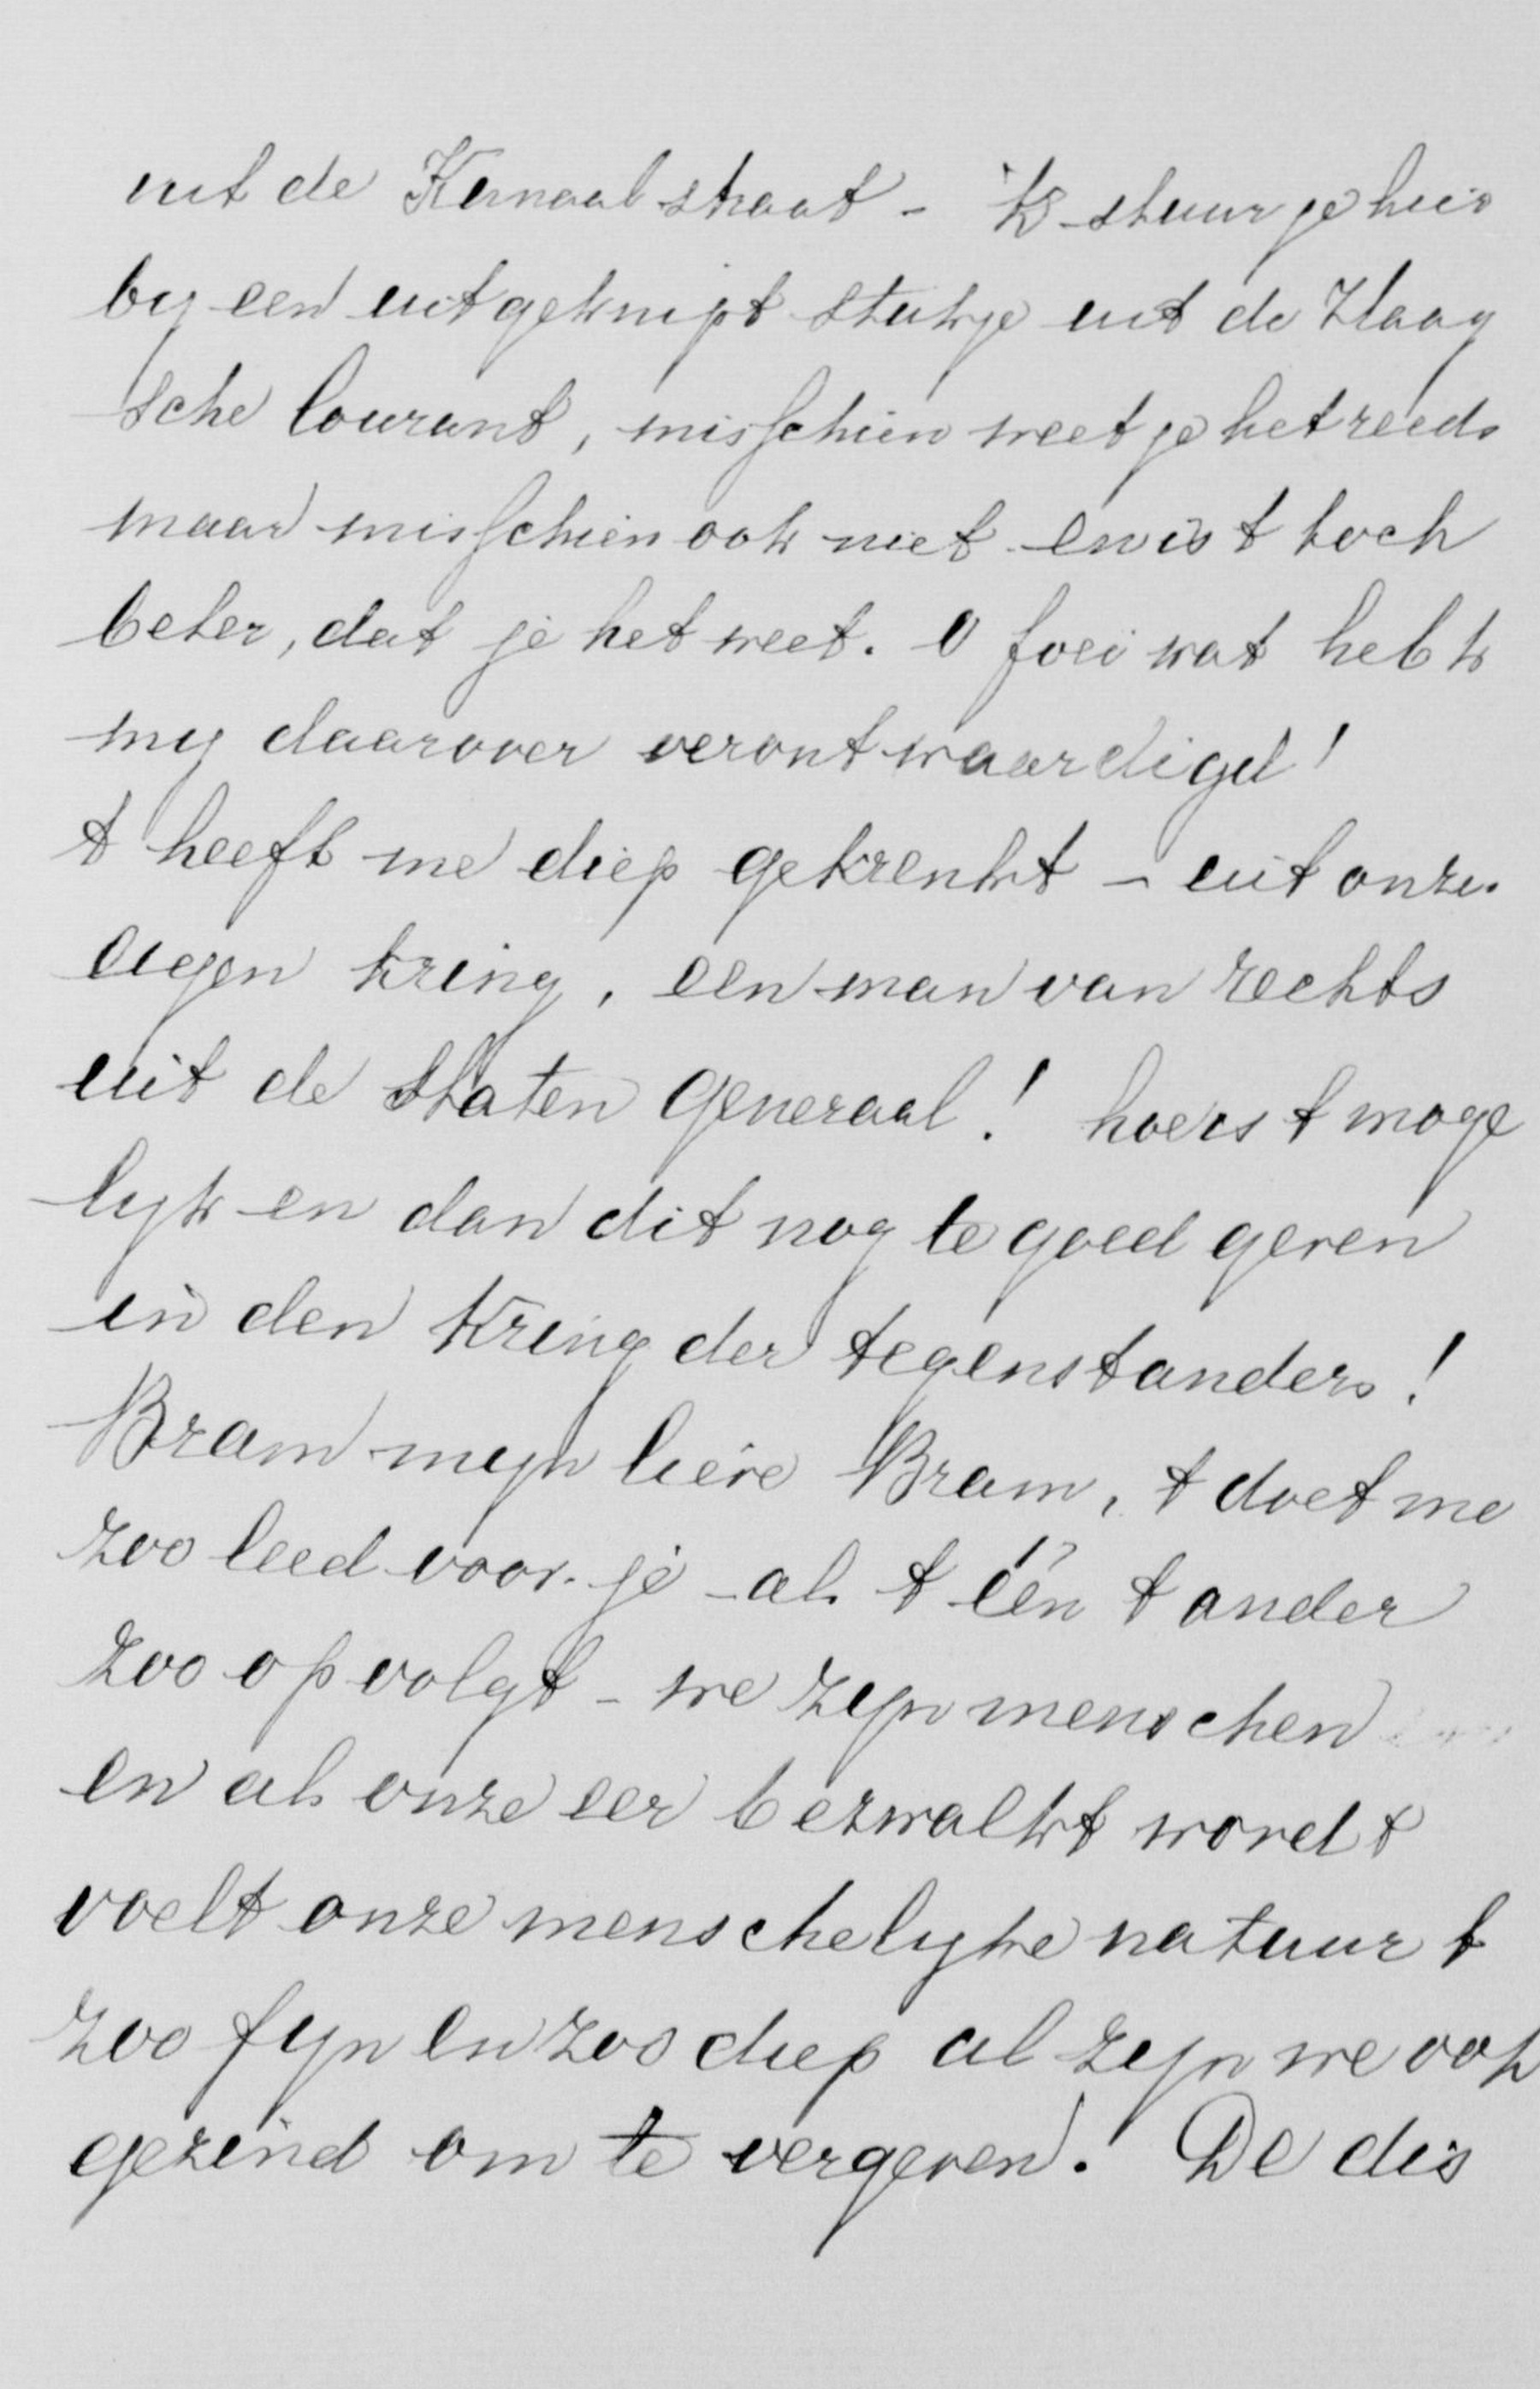 uit de Kanaalstraat - 'k stuur je hier
by een uitgeknipt stukje uit de Haag
sche Courant, misschien weet je het reeds
maar misschien ook niet en is t toch
beter, dat je het weet. O foei wat heb k
my daarover verontwaardigd!
t heeft me diep gekrenkt - uit onze
eigen kring, een man van rechts
uit de Staten Generaal! hoe is t moge
lyk en dan dit nog te goed geven
in den kring der tegenstanders!
Bram myn lieve Bram, t doet me
zoo leed voor je - als t één t ander
zoo opvolgt - we zyn menschen
en als onze eer bezwalkt wordt
voelt onze menschelyke natuur t
zoo fyn en zoo diep al zyn we ook
gezind om te vergeven. De dis